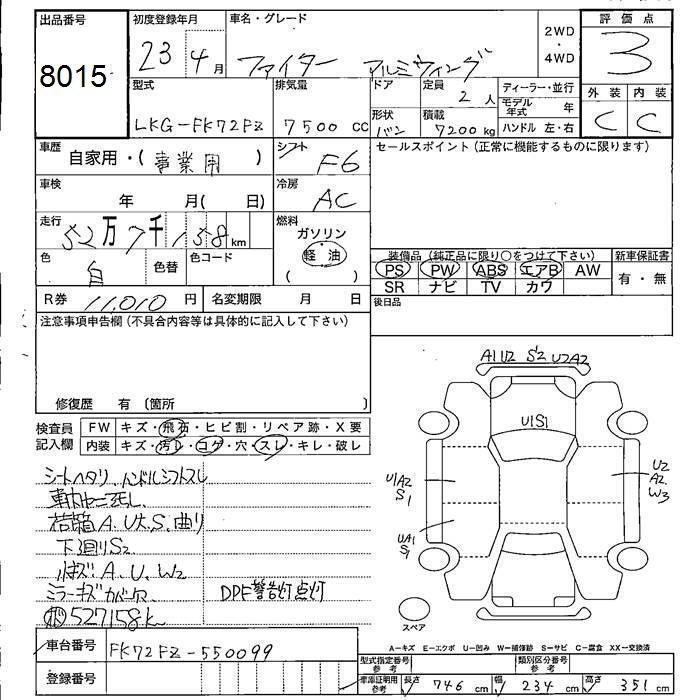 出品番号
8015
初度登録年月
23年 4月
車名・グレード
ファイター アルミウィング
2WD
・
4WD
評価点
3
型式
LKG-FK72FZ
排気量
7500 cc
ドア
形状
バン
定員
2 人
積載
7200 kg
ディーラー・並行
モデル年式 年
ハンドル 左・右
外装 内装
C C
車歴
自家用・(事業用)
シフト
F6
セールスポイント(正常に機能するものに限ります)
車検
年 月( 日)
冷房
AC
走行
52万7千158km
燃料
ガソリン
軽油
( )
色
白
色替
色コード
装備品(純正品に限り○をつけて下さい)
PS PW ABS エアB AW
SR ナビ TV カワ
新車保証書
有・無
R券 11,010 円
名変期限 月 日
後日品
注意事項申告欄(不具合内容等は具体的に記入して下さい)
修復歴 有〔箇所 〕
検査員
記入欄
FW キズ・飛石・ヒビ割・リペア跡・X要
内装 キズ・汚レ・コゲ・穴・スレ・キレ・破レ
シートヘタリ、ハンドルシフトスレ
荷箱A.U大.S.曲り
下廻りS2
A.U.W2
ミラーキズカバー欠
DPF警告灯点灯
527158k
A1U2 S2 U2A2
U1S1
U1A2
S1
U2
A2
W3
UA1
S1
スペア
車台番号
FK72FZ-550099
登録番号
A-キズ E-エクボ U-凹み W-補修跡 S-サビ C-腐食 XX-交換済
型式指定番号
参考
類別区分番号
参考
車庫証明用
参考
長さ 746 cm
幅 234 cm
高さ 351 cm